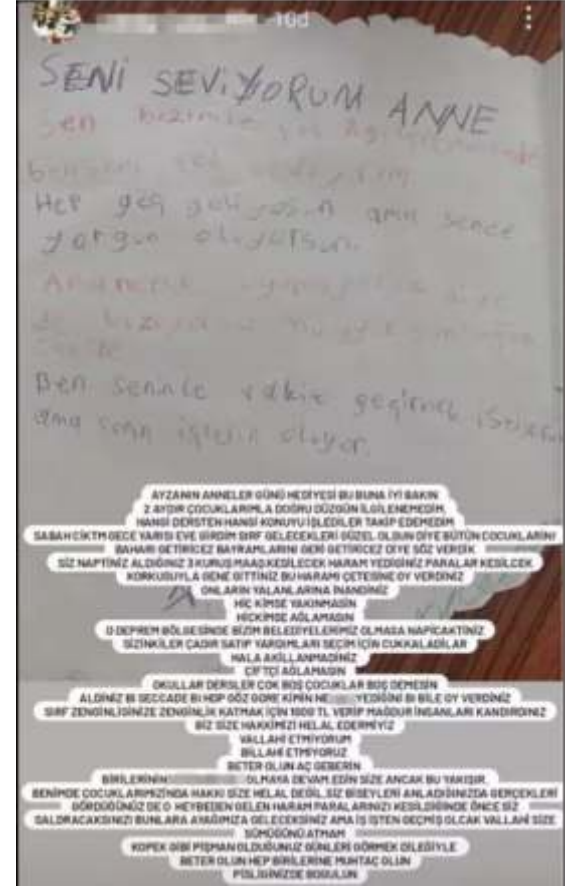 10d
SENİ SEVİYORUM ANNE
sen bizimle çok
ben seni çok
Hep geç geliyosun ama sence
yorgun oluyorsun.
Ben seninle vakit geçirmek
ama senin işlerin oluyor.
AYZANIN ANNELER GÜNÜ HEDİYESİ BU BUNA İYİ BAKIN
2 AYDIR ÇOCUKLARIMLA DOĞRU DÜZGÜN İLGİLENEMEDİM,
HANGİ DERSTEN HANGİ KONUYU İŞLEDİLER TAKİP EDEMEDİM
SABAH CİKTM GECE YARISI EVE GİRDİM SIRF GELECEKLERİ GÜZEL OLSUN DİYE BÜTÜN COCUKLARINI
BAHARI GETİRİCEZ BAYRAMLARINI GERİ GETİRİCEZ DİYE SÖZ VERDİK
SİZ NAPTİNİZ ALDIĞINIZ 3 KURUŞ MAAŞ KESİLECEK HARAM YEDİĞİNİZ PARALAR KESİLCEK
KORKUSUYLA GENE GİTTİNİZ BU HARAMİ ÇETESİNE OY VERDİNİZ
ONLARIN YALANLARINA İNANDİNİZ
HİÇ KİMSE YAKINMASIN
HİCKİMSE AĞLAMASIN
O DEPREM BÖLGESİNDE BİZİM BELEDİYELERİMİZ OLMASA NAPICAKTİNİZ
SİZİNKİLER ÇADIR SATIP YARDIMLARI SEÇİM İÇİN CUKKALADİLAR
HALA AKİLLANMADİNİZ
ÇİFTÇİ AĞLAMASIN
OKULLAR DERSLER ÇOK BOŞ ÇOCUKLAR BOŞ DEMESİN
ALDİNİZ Bİ SECCADE Bİ HDP GÖZ GORE KİMİN NE YEDİĞİNİ Bİ BİLE OY VERDİNİZ
SIRF ZENGİNLİGİNİZE ZENGİNLİK KATMAK İÇİN 1000 TL VERİP MAĞDUR İNSANLARI KANDIRDINIZ
BİZ SİZE HAKKİMİZİ HELAL EDERMİYİZ
VALLAHİ ETMİYORUM
BİLLAHİ ETMİYORUZ
BETER OLUN AÇ GEBERİN
BİRİLERİNİN OLMAYA DEVAM EDİN SİZE ANCAK BU YAKIŞIR
BENİMDE ÇOCUKLARIMIZINDA HAKKI SİZE HELAL DEĞİL, SİZ BİSEYLERİ ANLADIĞINIZDA GERÇEKLERİ
GÖRDÜĞÜNÜZ DE O HEYBEDEN GELEN HARAM PARALARINIZI KESİLDİĞİNDE ÖNCE SİZ
SALDIRACAKSINIZI BUNLARA AYAĞIMIZA GELECEKSİNİZ AMA İŞ İŞTEN GEÇMİŞ OLCAK VALLAHİ SİZE
SÜMÜĞÜNÜ ATMAM
KOPEK GİBİ PİŞMAN OLDUĞUNUZ GÜNLERİ GÖRMEK DİLEĞİYLE
BETER OLUN HEP BİRİLERİNE MUHTAÇ OLUN
PİSLİĞİNİZDE BOĞULUN